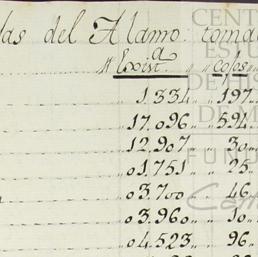 das del Alamo toma
# Exist.a " " Co/os
1.334 " 197.
17.096 " 594.
12.907 " 30
" 01.751 " " 25
" 03.700 " " 46
" 03.960 " " 10
" 04.523 " " 96
CENT
ES
DE HIS
DE M
FUN
Car